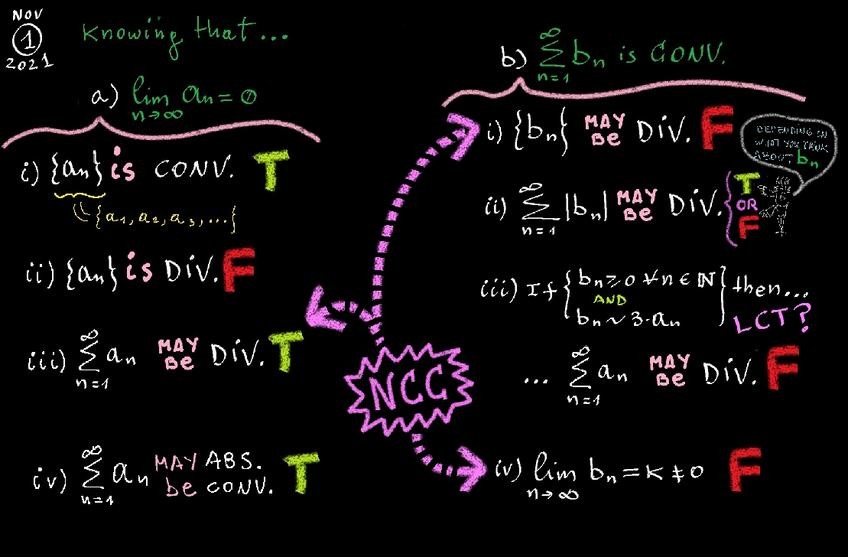 NOV
1
2021
Knowing that...
a) lim aₙ = 0
n→∞
i) {aₙ} is CONV. T
{a₁, a₂, a₃, ...}
ii) {aₙ} is DIV. F
iii) ∞ Σ n=1 aₙ MAY Be DIV. T
iv) ∞ Σ n=1 aₙ MAY be ABS. CONV. T
NCC
b) ∞ Σ n=1 bₙ is CONV.
i) {bₙ} MAY Be DIV. F
DEPENDING ON
WHAT YOU THINK
ABOUT bₙ
ii) ∞ Σ n=1 |bₙ| MAY Be DIV. { T OR F
iii) If { bₙ ≥ 0 ∀n ∈ ℕ
AND
bₙ ~ 3·aₙ } then...
LCT?
... ∞ Σ n=1 aₙ MAY Be DIV. F
iv) lim bₙ = K ≠ 0 F
n→∞